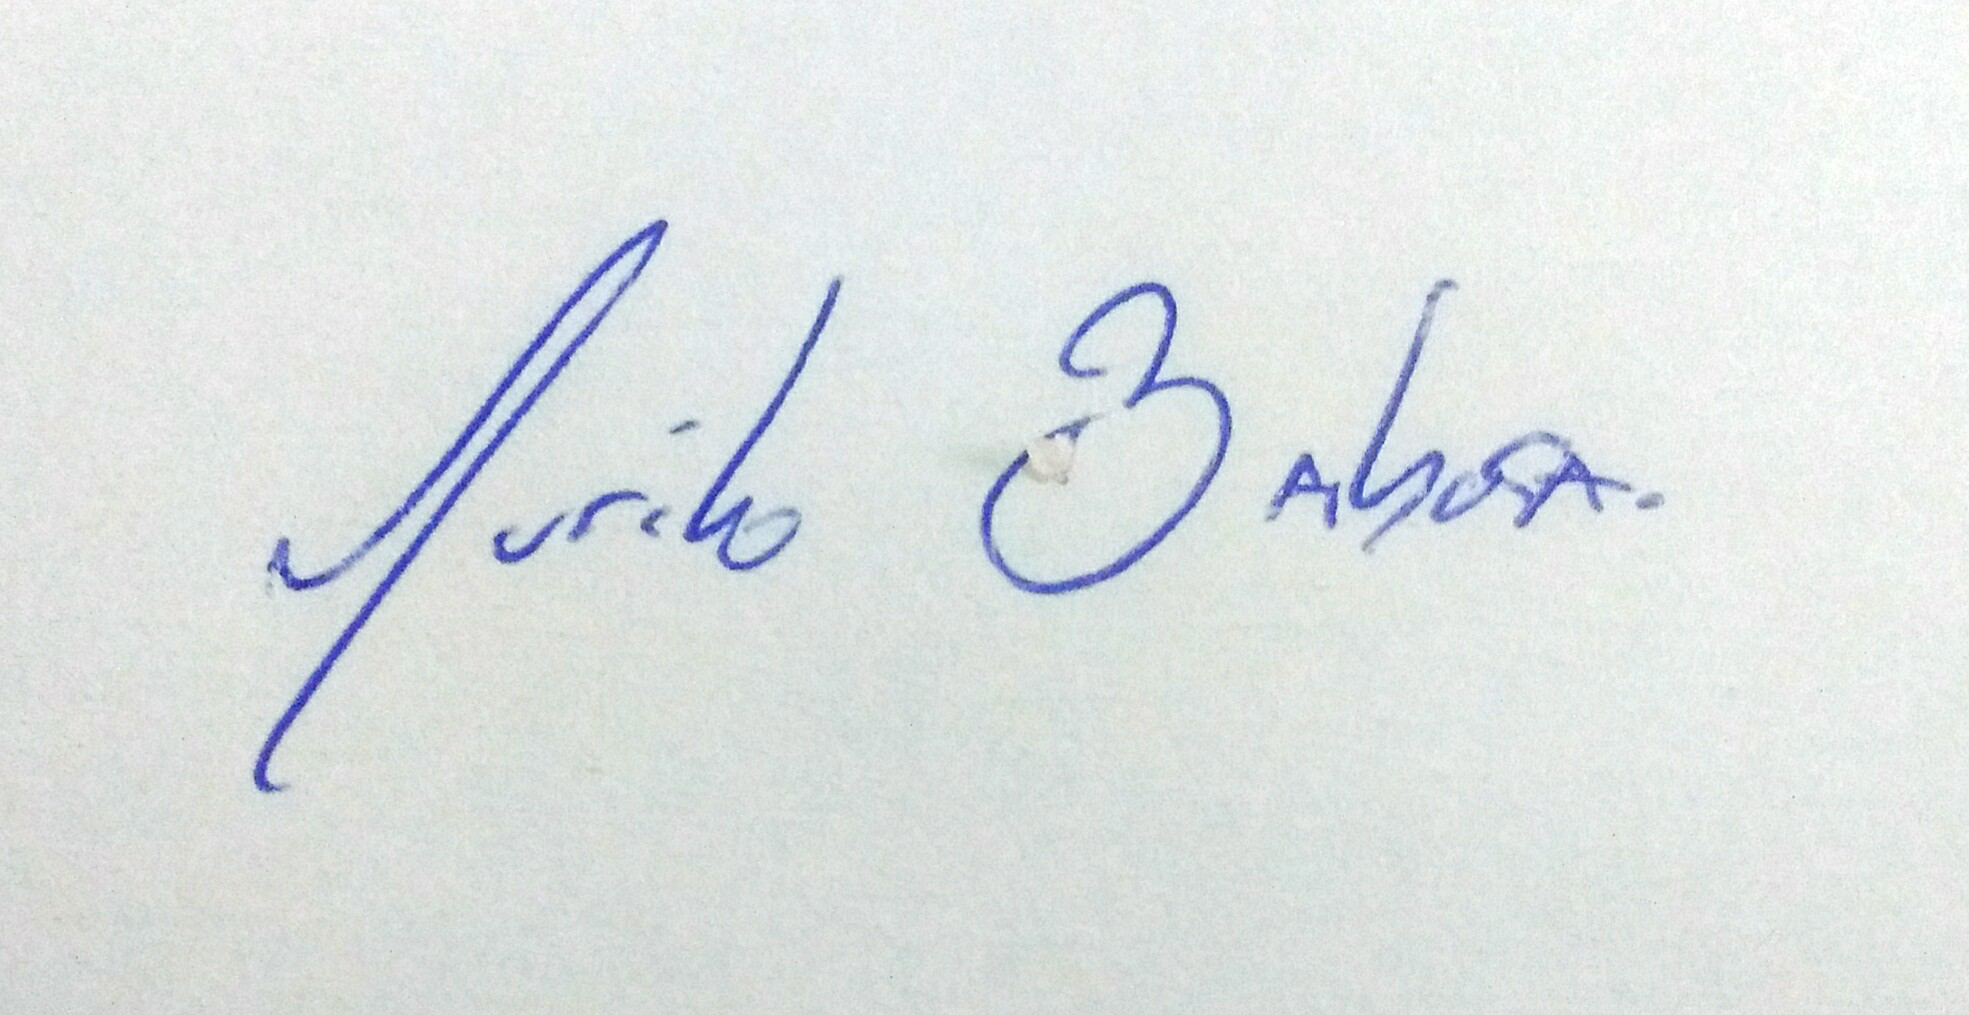 Murilo Barbosa.